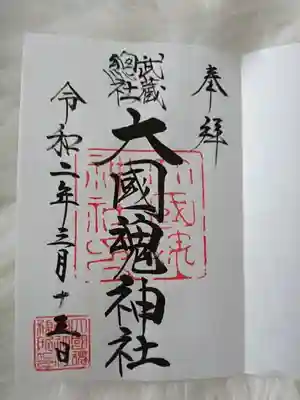 奉拝
武蔵
總社
大國魂神社
令和二年三月十五日